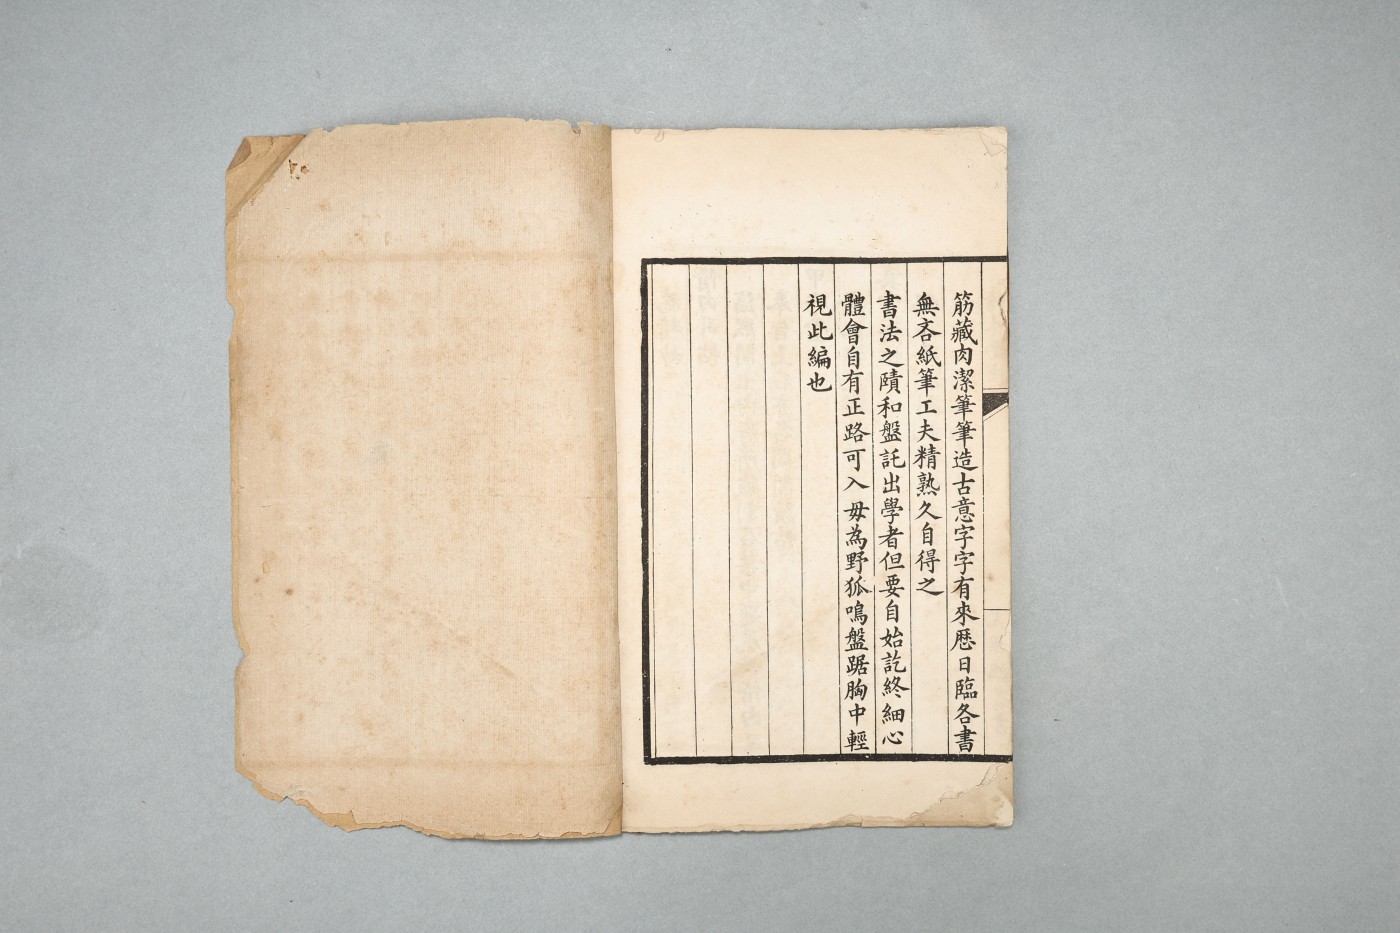 筋藏肉潔筆筆造古意字字有來歷日臨各書
無吝紙筆工夫精熟久自得之
書法之賾和盤託出學者但要自始訖終細心
體會自有正路可入毋為野狐鳴盤踞胸中輕
視此編也